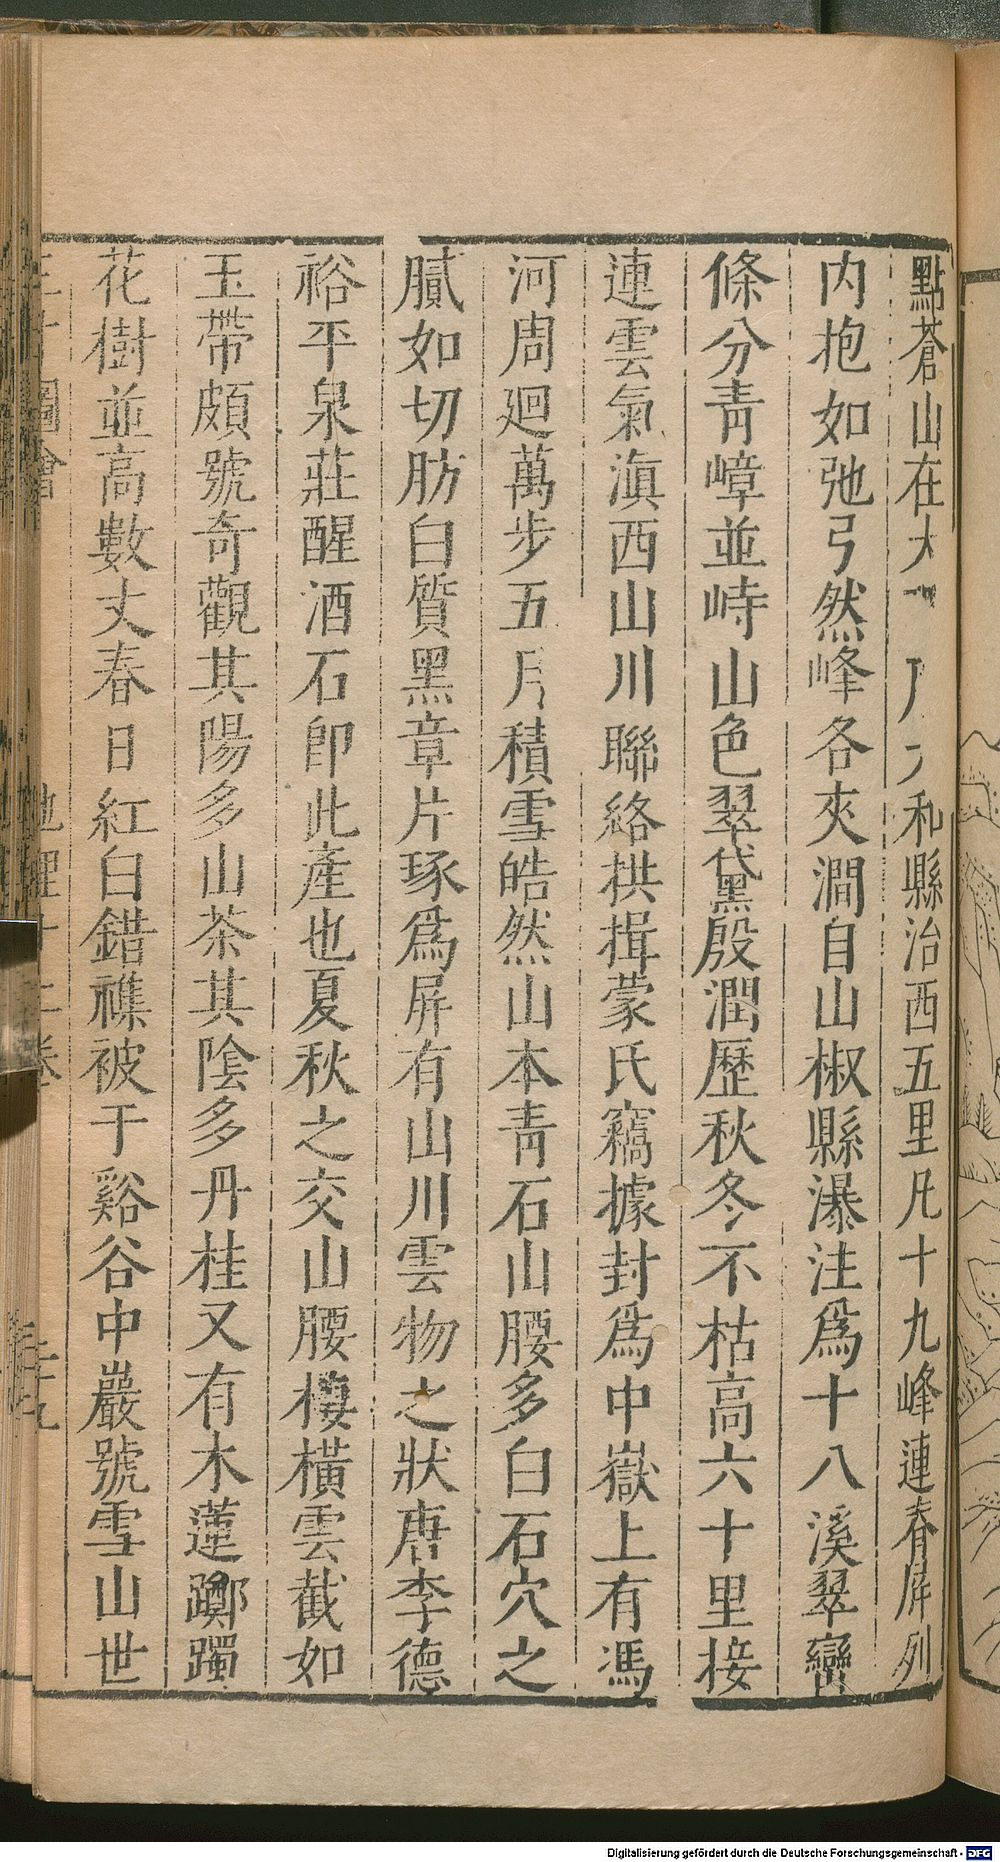 點蒼山在大 和縣治西五里凡十九峰連春屏列
内抱如弛弓然峰各夾澗自山椒縣瀑注爲十八溪翠巒
條分青嶂並峙山色翠黛殷潤歷秋冬不枯高六十里接
連雲氣滇西山川聯絡拱揖蒙氏竊據封爲中嶽上有馮
河周迴萬步五月積雪皓然山本青石山腰多白石穴之
膩如切肪白質黑章片琢爲屏有山川雲物之狀唐李德
裕平泉莊醒酒石即此產也夏秋之交山腰棲橫雲截如
玉帶頗號奇觀其陽多山茶其陰多丹桂又有木蓮躑躅
花樹並高數丈春日紅白錯襍被于谿谷中巖號雪山世
圖會 地理十二卷
Digitalisierung gefördert durch die Deutsche Forschungsgemeinschaft - DFG